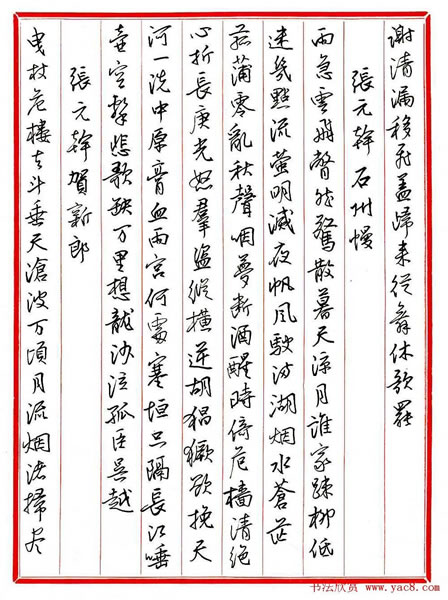 谢清漏移飛蓋歸來從舞休歌罷
張元幹石州慢
雨急雲飛瞥然驚散暮天涼月誰家疎柳低
迷幾點流螢明滅夜帆風駛满湖烟水蒼茫
菰蒲零亂秋聲咽夢斷酒醒時倚危檣清絕
心折長庚光怒羣盜縱橫逆胡猖獗欲挽天
河一洗中原膏血兩宮何處塞垣只隔長江唾
壺空擊悲歌缺万里想龍沙泣孤臣吳越
張元幹賀新郎
曳杖危樓去斗垂天滄波万頃月流烟渚掃尽
书法欣赏 www.yac8.com